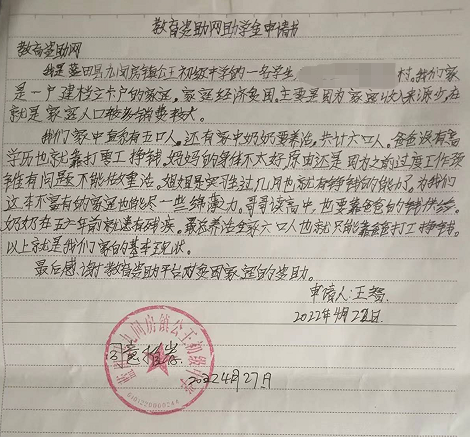 教育资助网助学金申请书
教育资助网
我是蓝田县九间房镇公王初级中学的一名学生 村。我们家
是一户建档立卡户的家庭，家庭经济贫困。主要是因为家庭收入来源少，在
就是家庭人口较多销费较大。
我们家中直系有五口人，还有家中奶奶要养活，共计六口人。爸爸没有高
学历也就靠打零工挣钱，妈妈的身体不太好原由还是因为之前过度工作颈
椎有问题不能做重活。姐姐是实习生过几月也就有挣钱的能力了，为我们
这本不富有的家庭也能尽一些绵薄力。哥哥读高中，也要靠爸爸的钱供给。
奶奶在五六年前就遗有残疾。最终养活全家六口人也就只能靠爸爸打工挣钱。
以上就是我们家的基本现状。
最后感谢教育资助平台对贫困家庭的资助。
申请人：王
2022年4月28日
同意推荐
2022 4月27日
蓝田县九间房镇公王初级中学